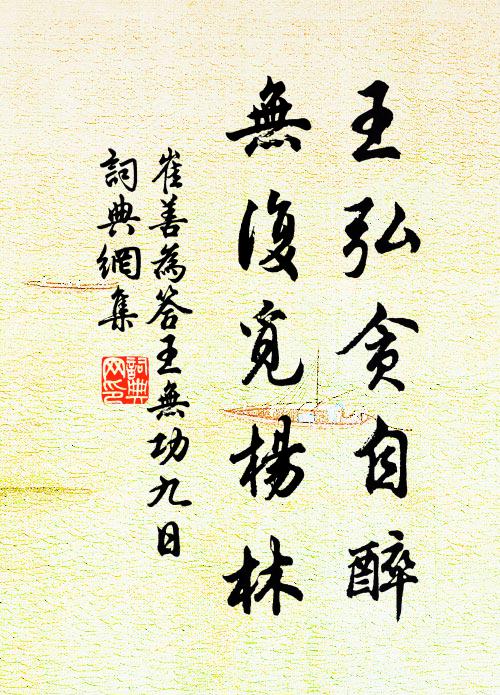 王弘貪自醉
無復覓楊林
崔善為答王無功九日
詞典網集
詞典
網印